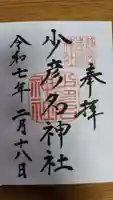 奉拝
少彦名神社
令和七年二月十八日